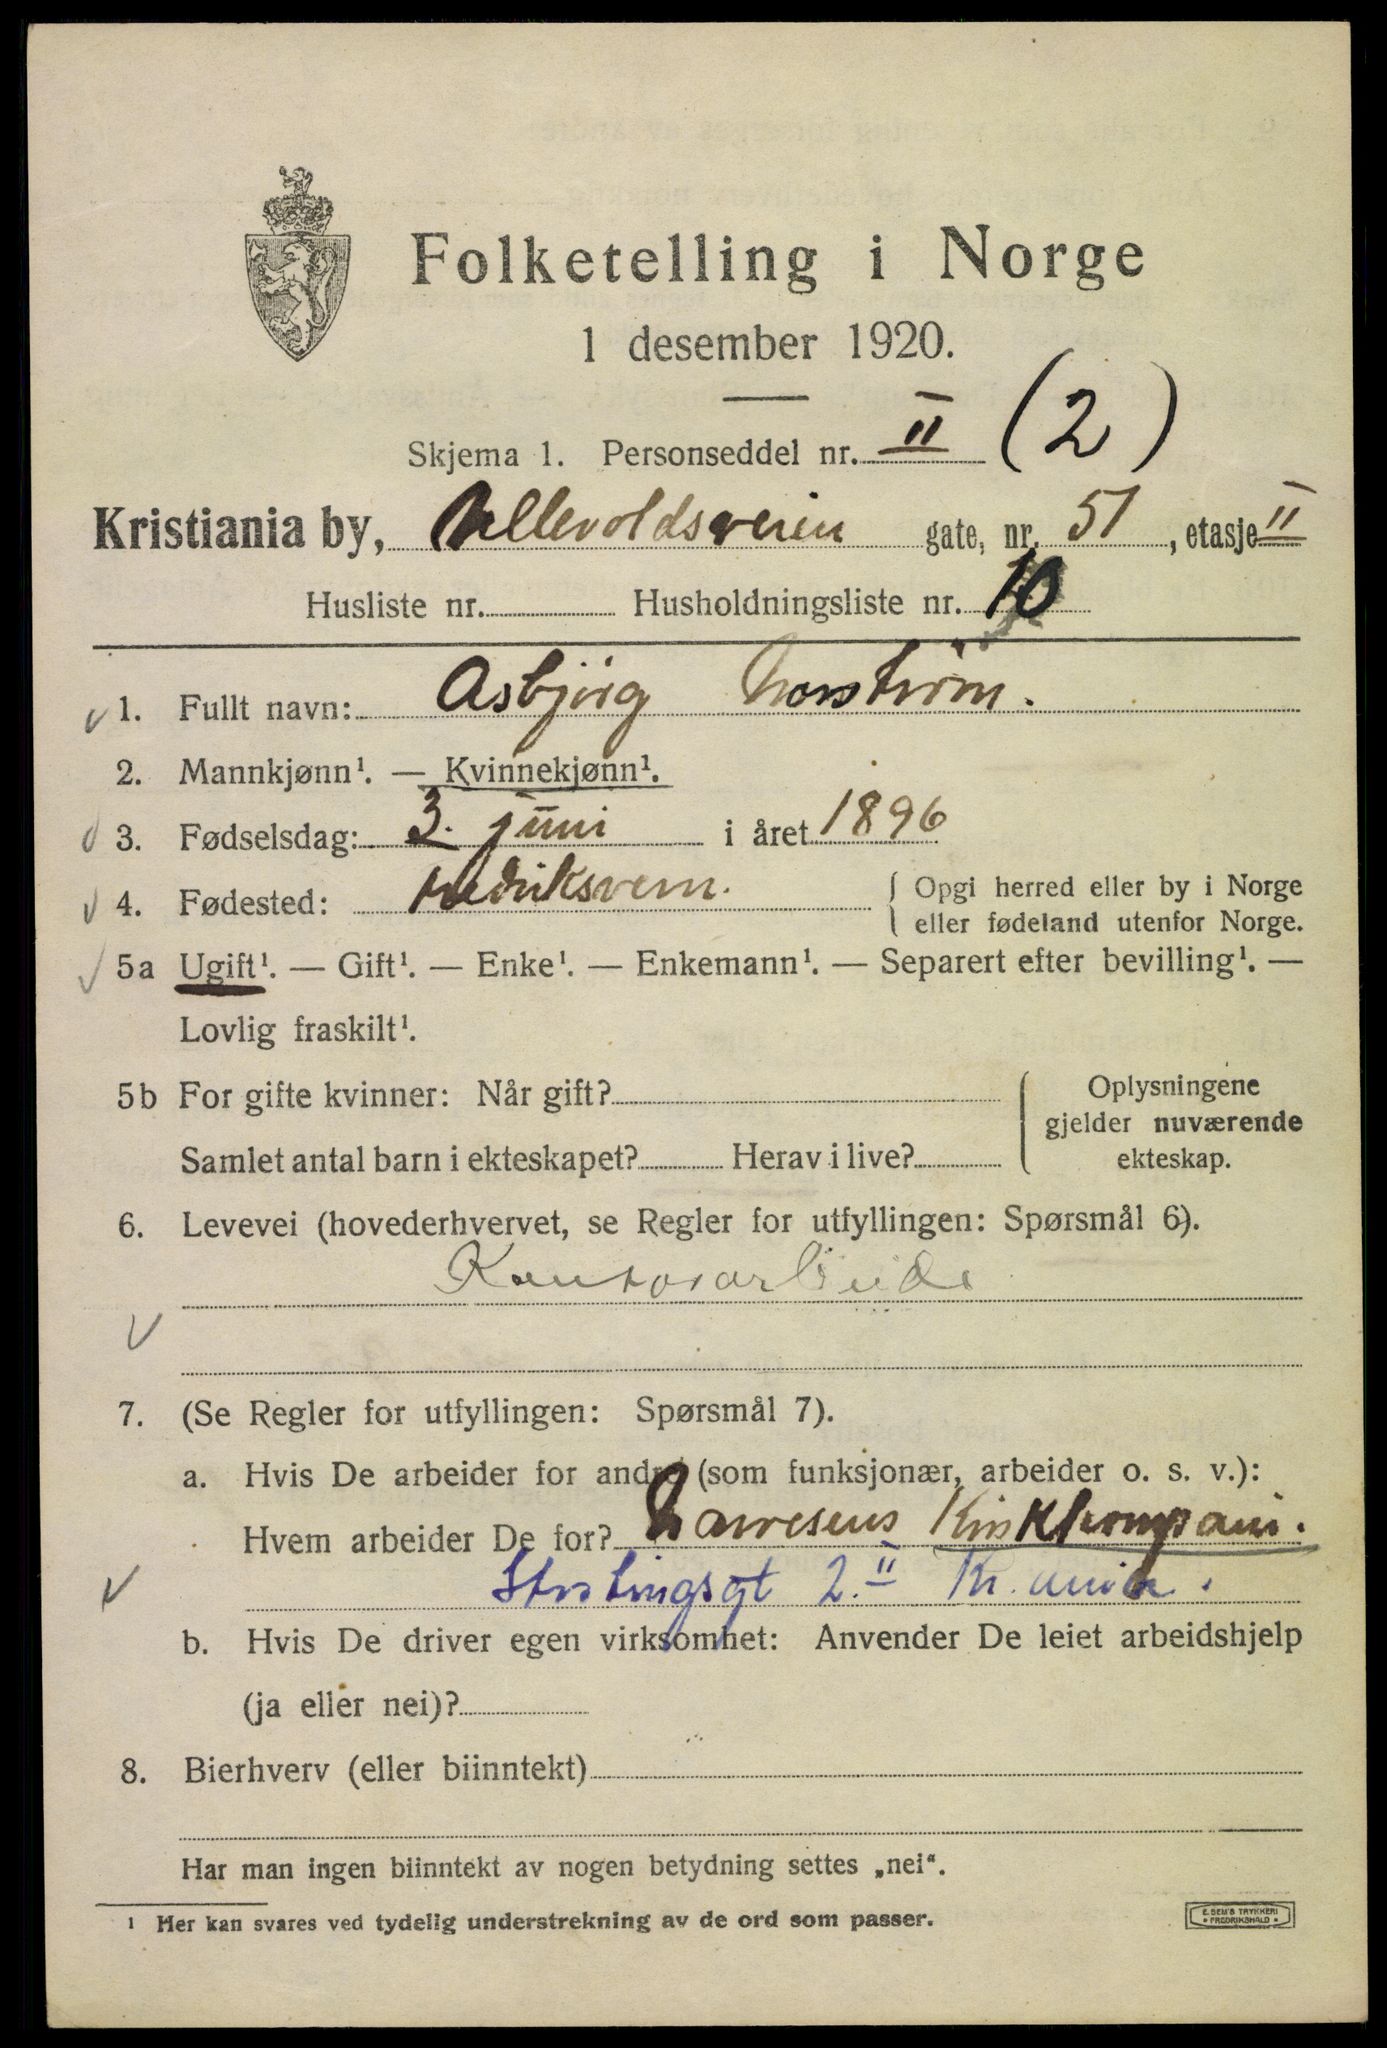 Folketelling i Norge
1 desember 1920.
Skjema 1. Personseddel nr. II (2)
Kristiania by, Ullevoldsveien gate, nr. 51, etasje II
Husliste nr. Husholdningsliste nr. 10
1. Fullt navn: Asbjörg
2. Mannkjønn¹. — Kvinnekjønn¹.
3. Fødselsdag: 3. juni i året 1896
4. Fødested: Fredriksvern. Opgi herred eller by i Norge
eller fødeland utenfor Norge.
5a Ugift¹. — Gift¹. — Enke¹. — Enkemann¹. — Separert efter bevilling¹. —
Lovlig fraskilt¹.
5b For gifte kvinner: Når gift? Oplysningene
gjelder nuværende
Samlet antal barn i ekteskapet? Herav i live? ekteskap.
6. Levevei (hovederhvervet, se Regler for utfyllingen: Spørsmål 6).
Kontorarbeide
7. (Se Regler for utfyllingen: Spørsmål 7).
a. Hvis De arbeider for andre (som funksjonær, arbeider o. s. v.):
Hvem arbeider De for?
Stortingsgt 2. II Kr.ania.
b. Hvis De driver egen virksomhet: Anvender De leiet arbeidshjelp
(ja eller nei)?
8. Bierhverv (eller biinntekt)
Har man ingen biinntekt av nogen betydning settes „nei“.
¹ Her kan svares ved tydelig understrekning av de ord som passer.
E. SEM'S TRYKKERI
• FREDRIKSHALD •